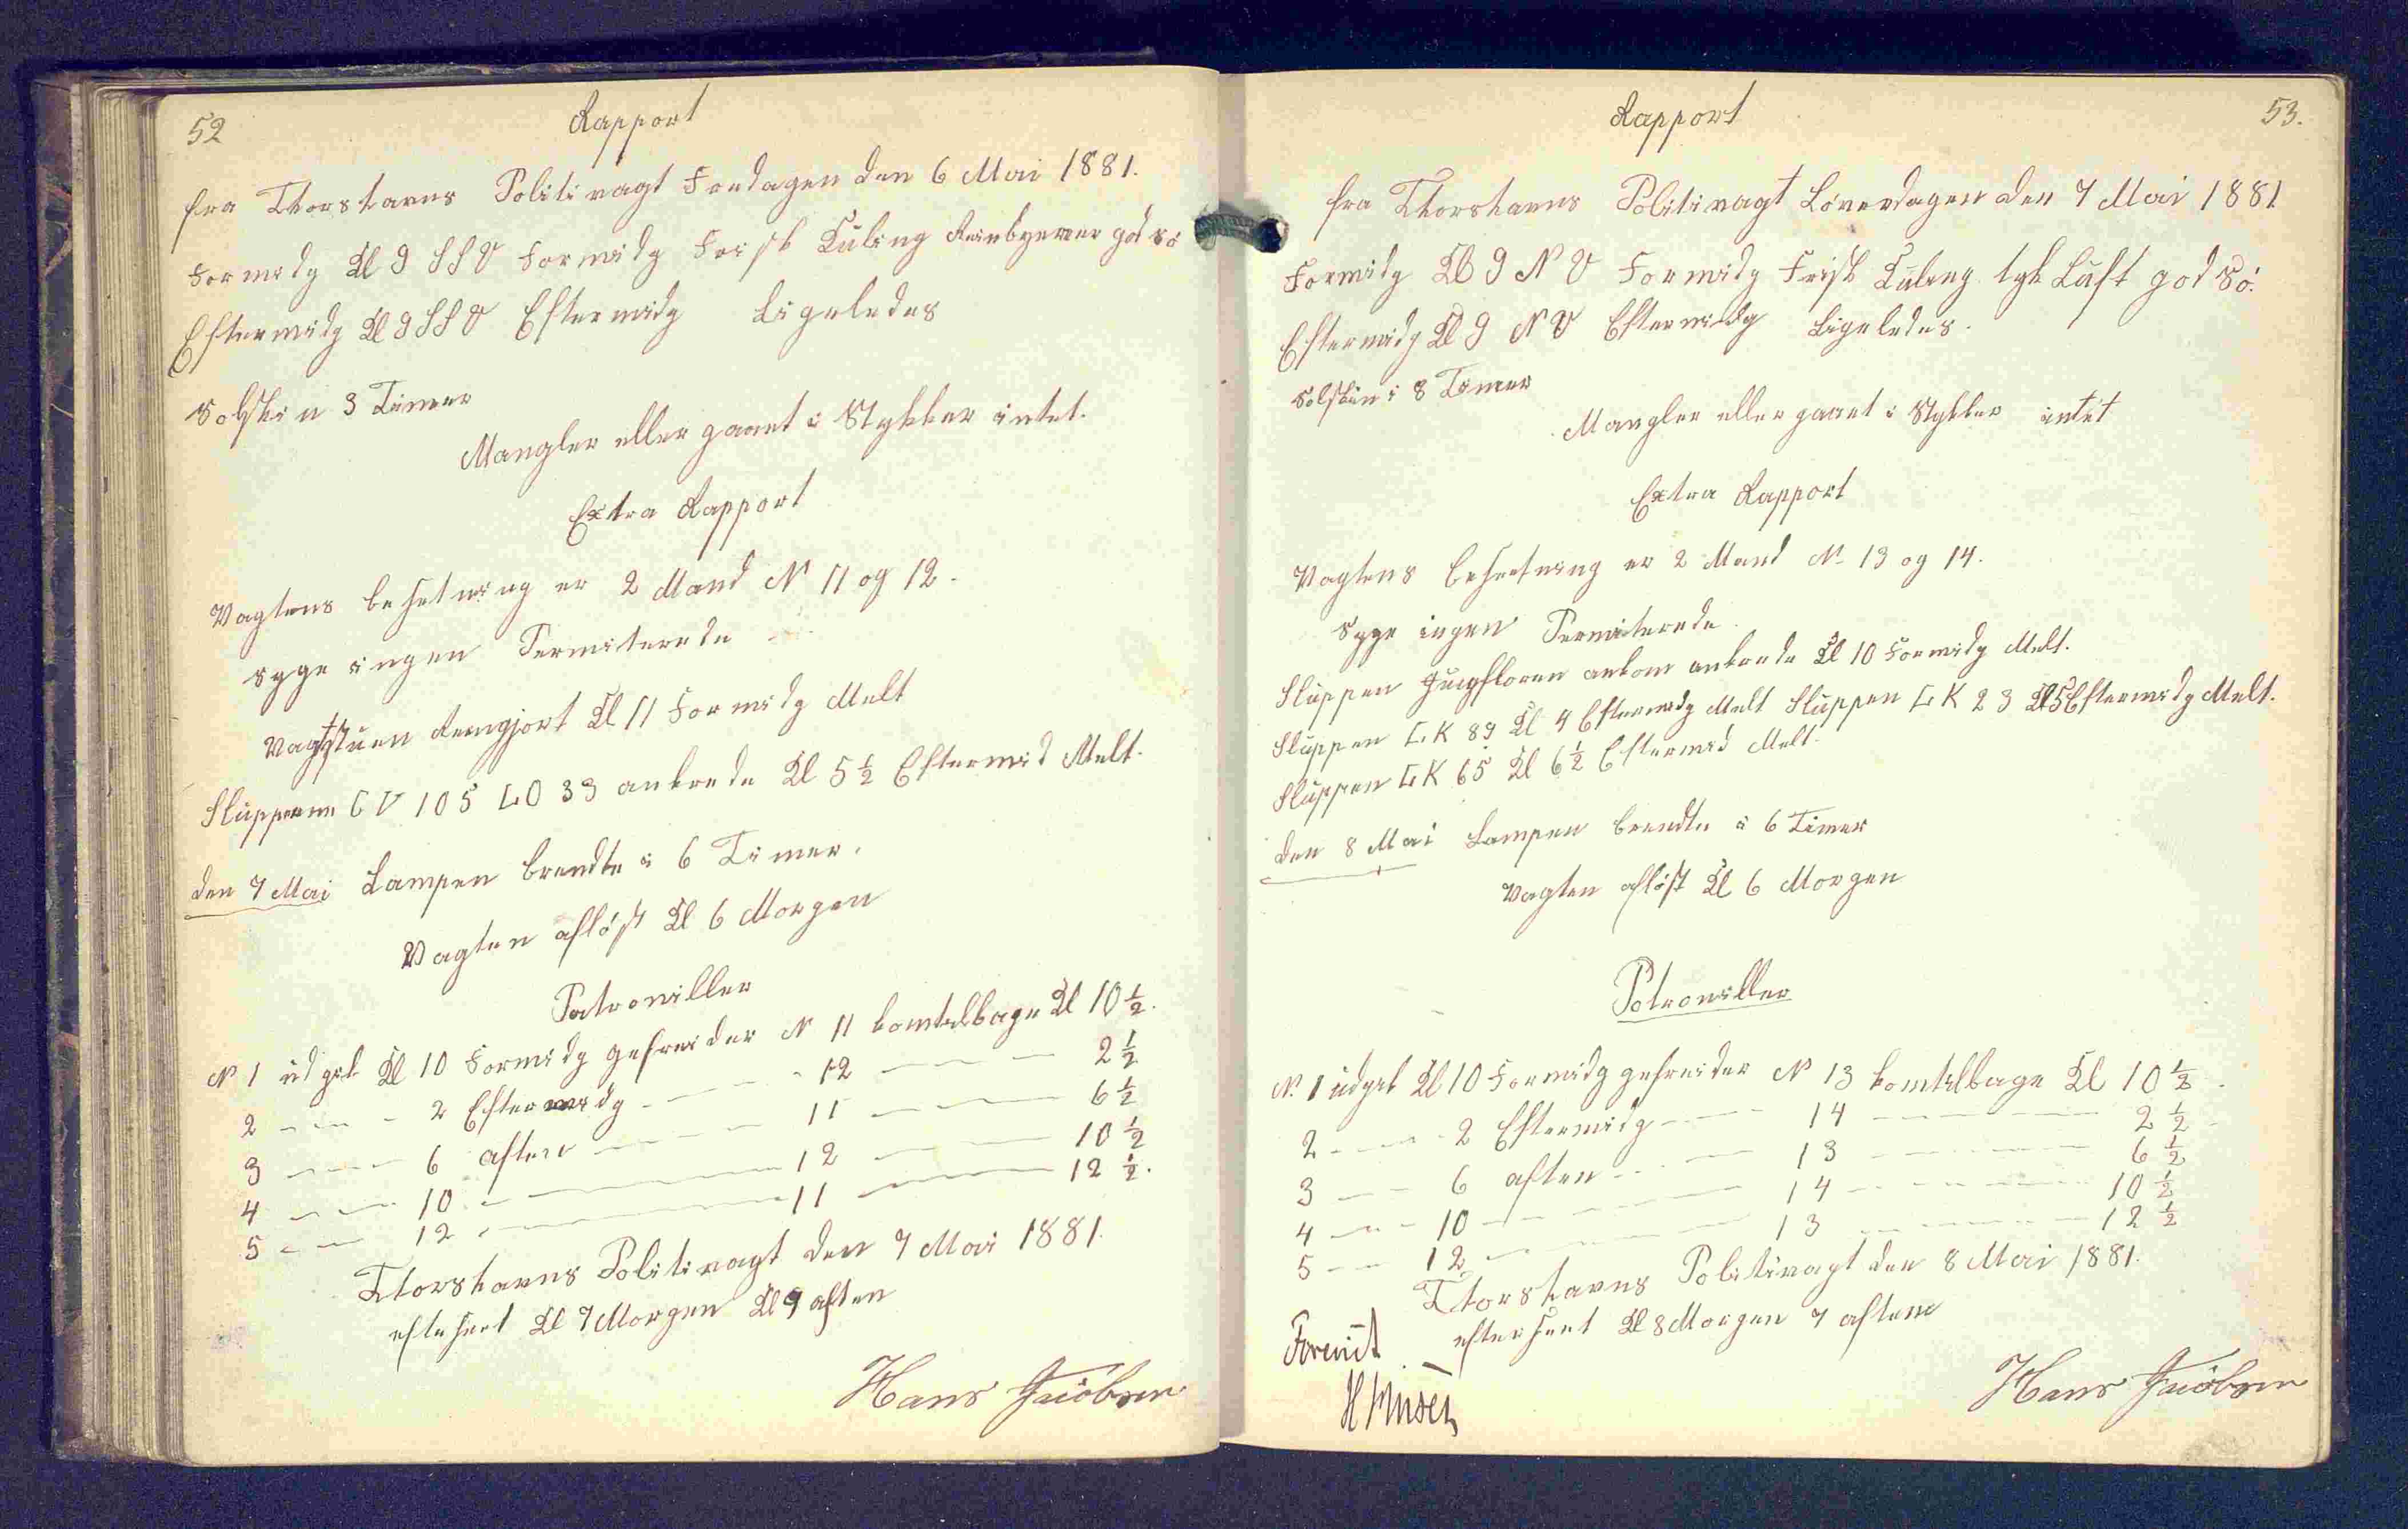 52
Rapport
fra Thorshavns Politivagt Fredagen den 6 Mai 1881.
Formidg Kl 9 SSV Formidg Frisk Kuling Reinbyerner god Sø
Eftermidg Kl 9 SSV Eftermidg Ligeledes
Solskin 3 Timer
Mangler eller gaaet i Stykker intet.
Extra Rapport
Vagtens besetning er 2 Mand N 11 og 12.
syge ingen Permiterede
Vagtstuen Rengjort Kl 11 Formidg Melt
Slupperne 105 LO 33 ankrede Kl 5½ Eftermid Melt.
den 7 Mai Lampen brendte i 6 Timer.
Vagten afløst Kl 6 Morgen
Patroviller
N 1 udgik Kl 10 Formidg gefreider N 11 komtelbage Kl 10½.
2 — — - 2 Eftermidg - — — - 12 — — — 2½
3 — — - 6 aften — — — 11 — — — 6½
4 — — 10 - — — — 12 — — — 10½
5 — — 12 - — — — 11 — — — 12½.
Thorshavns Politivagt den 7 Mai 1881.
efterseet Kl 7 Morgen Kl 9 aften
Hans Jacobsen
Rapport
53.
fra Thorshavns Politivagt Løverdagen den 7 Mai 1881
Formidg Kl 9 NV Formidg Frisk Kuling tyk Luft god Sø.
Eftermidg Kl 9 NV Eftermidg Ligeledes.
Solskin i 8 Timer
Mangler eller gaaet i Stykker intet
Extra Rapport
Vagtens besetning er 2 Mand N 13 og 14.
Syge ingen Permiterede.
Sluppen ankom ankrede Kl 10 Formidg Melt.
Sluppen LK 89 Kl 4 Eftermidg Melt Sluppen LK 23 Kl 5 Eftermidg Melt.
Sluppen LK 65 Kl 6½ Eftermid Melt.
den 8 Mai Lampen brendte i 6 Timer
Vagten afløst Kl 6 Morgen
Patroviller
N. 1 udgik Kl 10 Formidg gefreider N 13 komtelbage Kl 10½.
2 - — - 2 Eftermidg — - — 14 — — — 2½
3 — — 6 aften - — — 13 — — — 6½
4 — - 10 — — — 14 — — — 10½
5 - — 12 — — — 13 — — — 12½
Thorshavns Politivagt den 8 Mai 1881.
efterseet Kl 8 Morgen 7 aften
Forevist
Hans Jacobsen